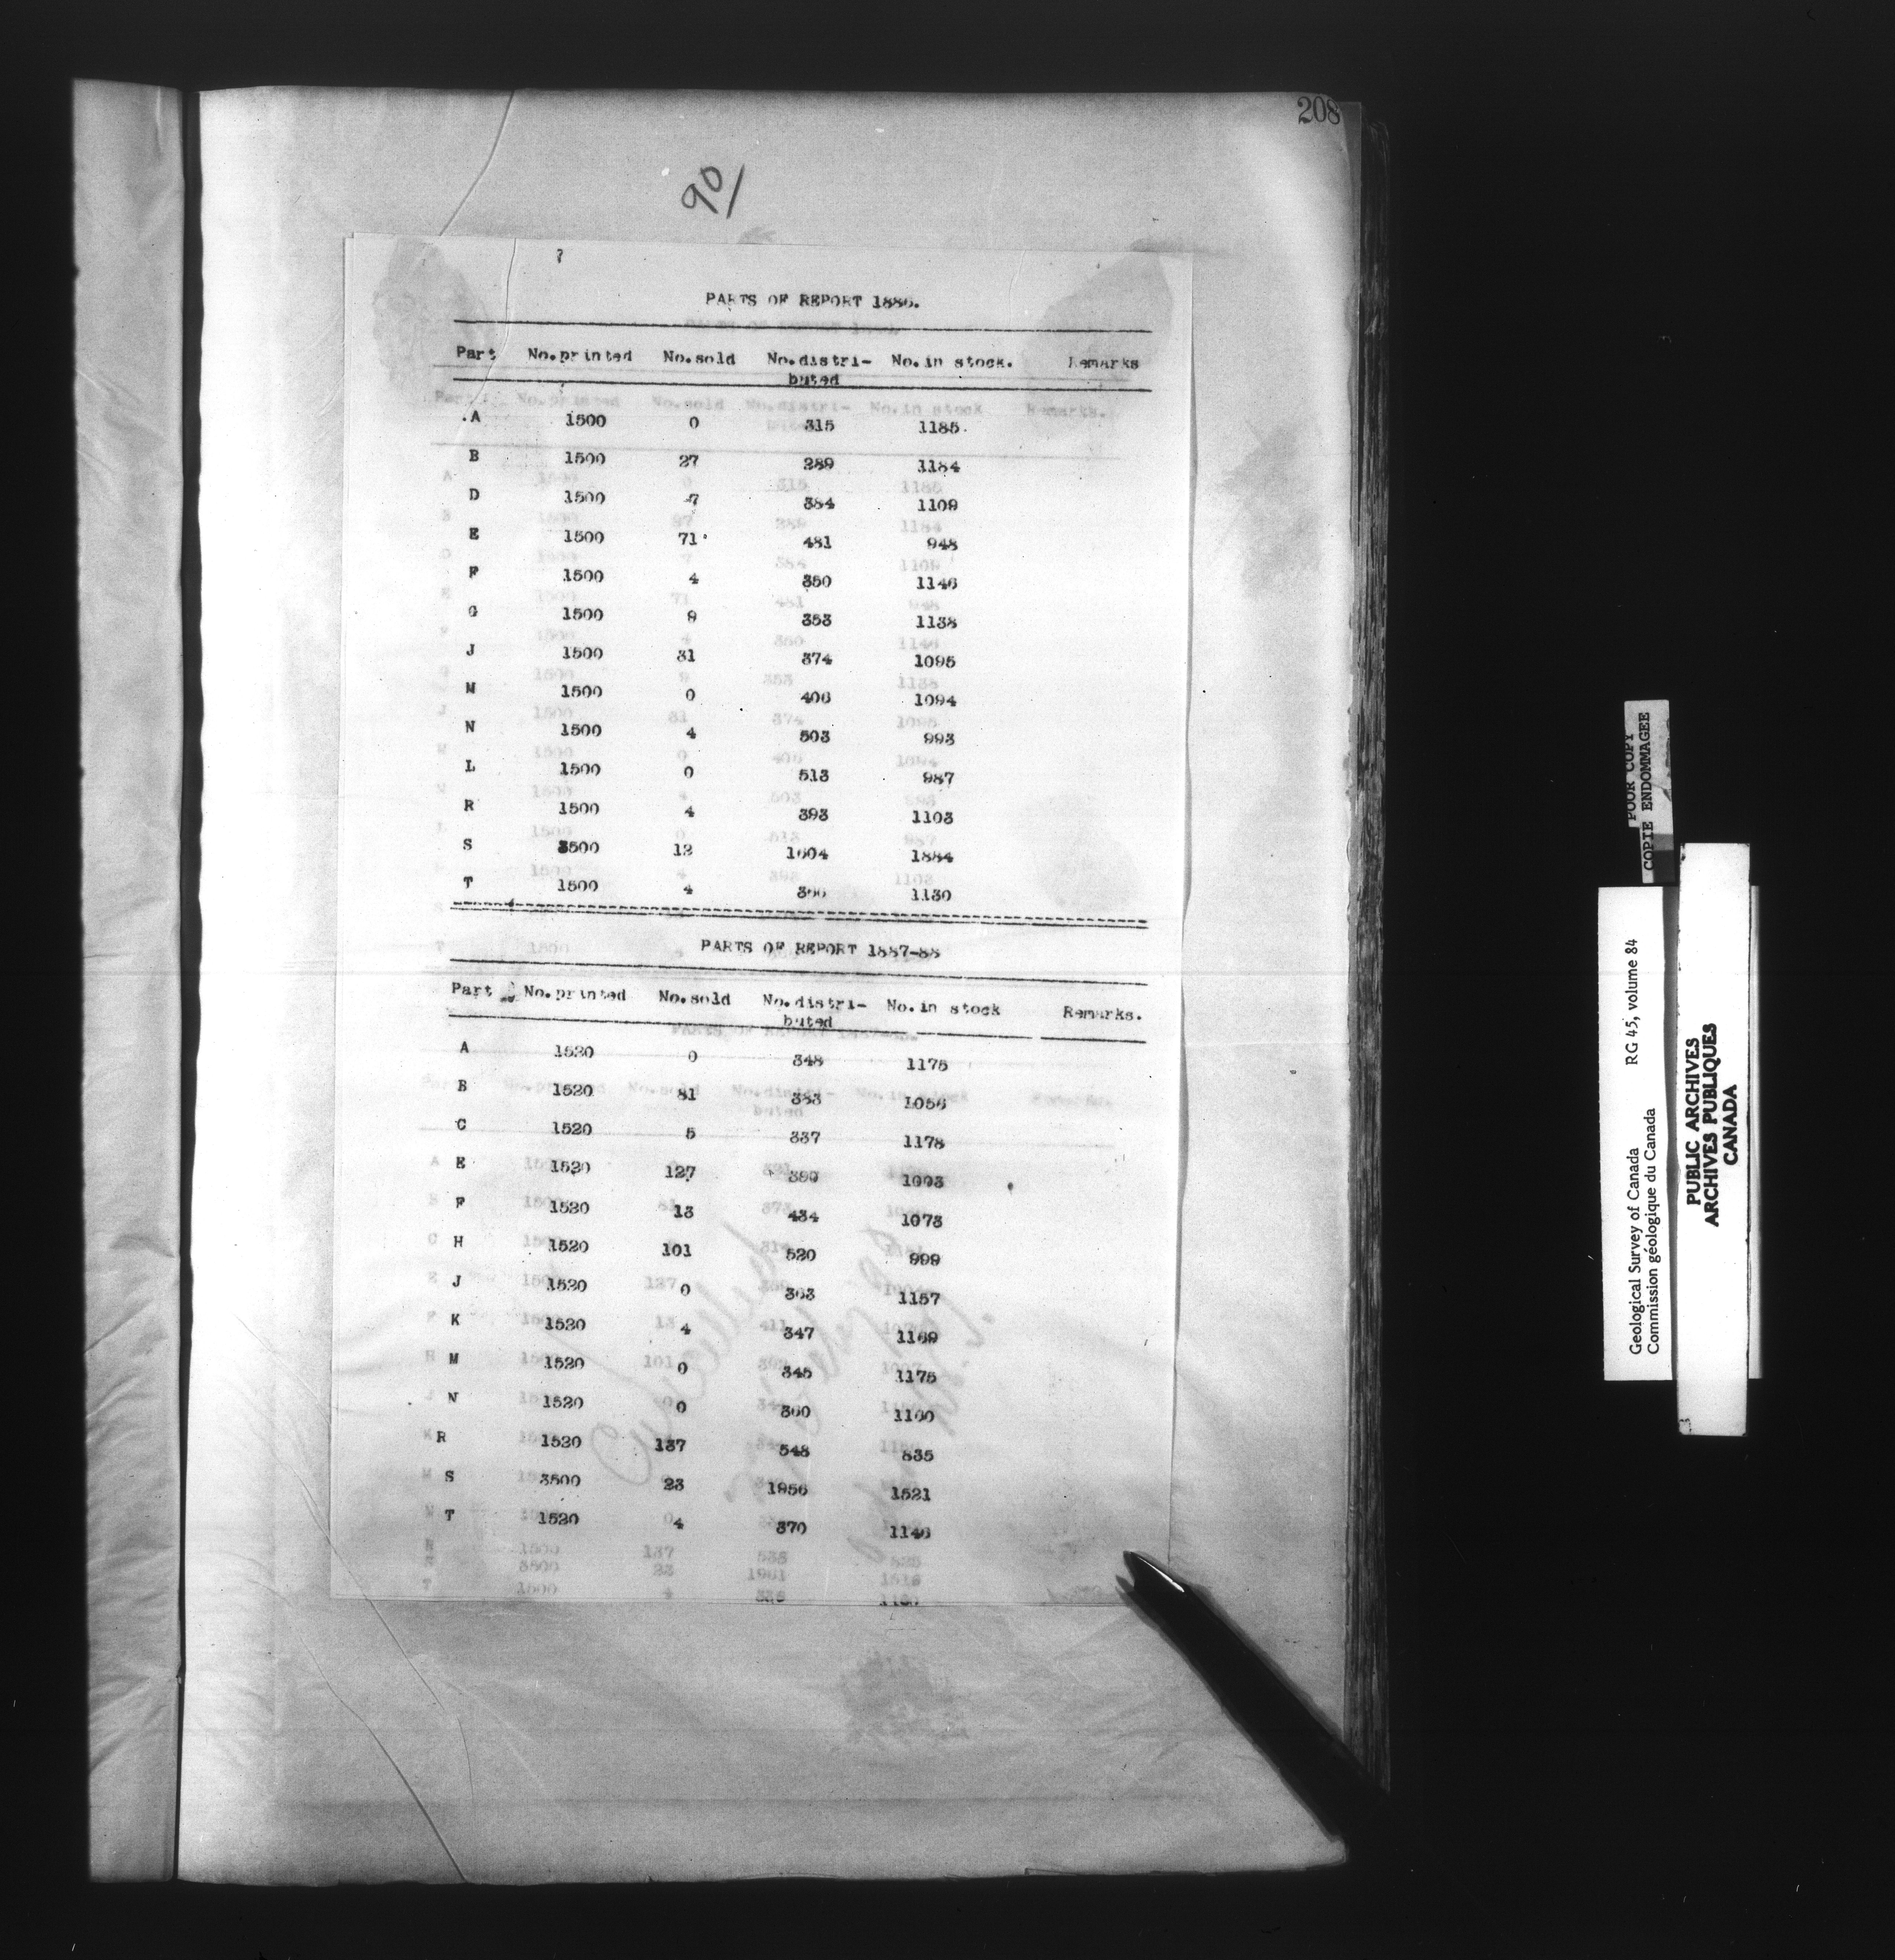 208
90/
PARTS OF REPORT 1886.
Part No.printed No.sold No.distri- No.in stock. Remarks
buted
A 1500 0 315 1185
B 1500 27 289 1184
D 1500 7 384 1109
E 1500 71 481 948
F 1500 4 350 1146
G 1500 9 353 1138
J 1500 31 374 1095
M 1500 0 406 1094
N 1500 4 503 993
L 1500 0 513 987
R 1500 4 393 1103
S 3500 12 1604 1884
T 1500 4 366 1130
PARTS OF REPORT 1887-88
Part No.printed No.sold No.distri- No.in stock Remarks.
buted
A 1520 0 348 1175
B 1520 81 383 1056
C 1520 5 337 1178
E 1520 127 390 1003
F 1520 13 434 1073
H 1520 101 520 999
J 1520 0 363 1157
K 1520 4 347 1169
M 1520 0 345 1175
N 1520 0 360 1160
R 1520 137 548 835
S 3500 23 1956 1521
T 1520 4 370 1146
POOR COPY
COPIE ENDOMMAGEE
Geological Survey of Canada RG 45, volume 84
Commission géologique du Canada
PUBLIC ARCHIVES
ARCHIVES PUBLIQUES
CANADA